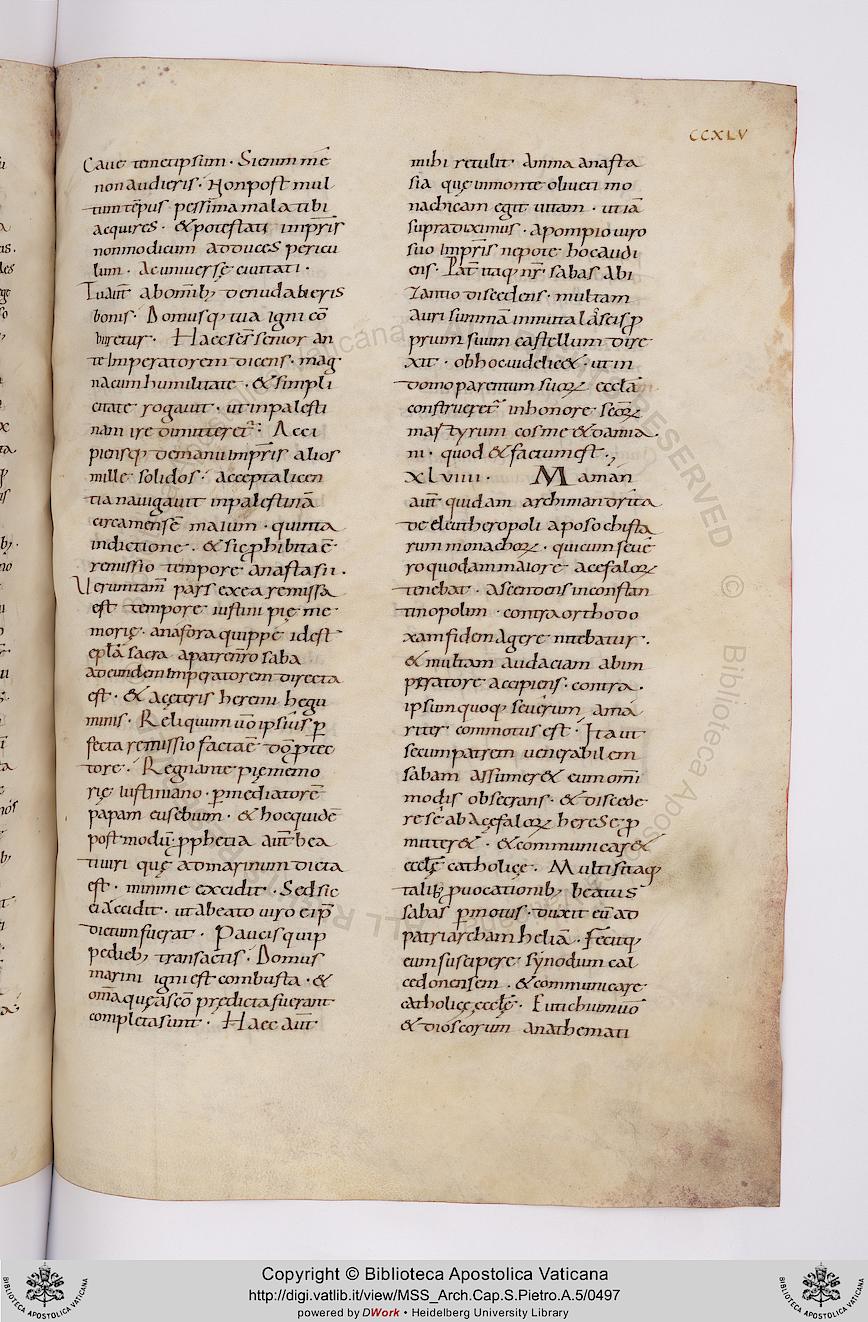 CCXLV
Caue temetipsum · Si enim me
non audieris · Non post mul
tum tēpus pessima mala tibi
acquires · & potestati impr̄is
non modicum adduces pericu
lum · ac uniuersę ciuitati ·
Tu aut̄ ab om̄ib; denudaberis
bonis · Domusq; tua igni cō
buretur · Haec ses̄ senior an
te Imperatorem dicens · mag
na cum humilitate · & simpli
citate rogauit · ut in palesti
nam ire dimitteret̄ · Acci
piensq; de manu impr̄is alios
mille solidos · accepta licen
tia nauigauit in palestinā
circa mensē maium · quinta
indictione · & sic p̱hibita ē
remissio tempore anastasii ·
Uerumtam̄ pars ex ea remissa
est tempore iustini pię me
morię · anafora quippe idest
epl̄a sacra a patre nr̄o saba
ad eundem Imperatorem directa
est · & a cęteris heremi hegu
minis · Reliquium uō ipsius p̱
fecta remissio facta ē dō p̱tec
tore · Regnante pię memo
rię Iustiniano · p̱ mediatorē
papam eusebium · & hoc quidē
post modū · p̱phetia aut̄ bea
ti uiri quę ad marinum dicta
est · minime excidit · Sed sic
ei accidit · ut a beato uiro ei p̄
dictum fuerat · Paucis quip
pe dieb; transactis · Domus
marini igni est combusta · &
om̄a quę a sc̄o prędicta fuerant
completa sunt · Haec aut̄
mihi retulit · Amma anasta
sia quę in monte oliueti mo
nachicam egit uitam · ut iā
supra diximus · a pompio uiro
suo Impr̄is nepote hoc audi
ens · Pat̄ itaq; nr̄ sabas a bi
zantio discedens · multam
auri summā in mutalascis p̱
prium suum castellum dire
xit · ob hoc uidelic& · ut in
domo parentum suoꝝ ecclā
construeret̄ in honore sc̄oꝝ
martyrum cosme & damia
ni · quod & factum est ·
XLVIIII · Maman
aut̄ quidam archimandrita
de eleutheropoli aposchista
rum monachoꝝ · qui cum seue
ro quodam maiore acefaloꝝ
tenebat · ascendens in constan
tinopolim · contra orthodo
xam fidem Agere nitebatur ·
& multam audaciam ab im
peratore accipiens · contra ·
ipsum quoq; seuerum amā
riter commotus est · Ita ut
secum patrem uenerabilem
sabam Assumer& eum om̄i
modis obsecrans · & discede
re sē ab acęfaloꝝ herese p̱
mitter& · & communicar&
ecclę̄ catholicę · Multis itaq;
talib; p̱uocationib; beatus
sabas p̱motus · duxit eū ad
patriarcham heliā · Fecitq;
eum suscipere synodum cal
cedonensem · & communicare
catholicę ecclę̄ · Eutichium uō
& dioscorum anathemati
Copyright © Biblioteca Apostolica Vaticana
http://digi.vatlib.it/view/MSS_Arch.Cap.S.Pietro.A.5/0497
powered by DWork • Heidelberg University Library